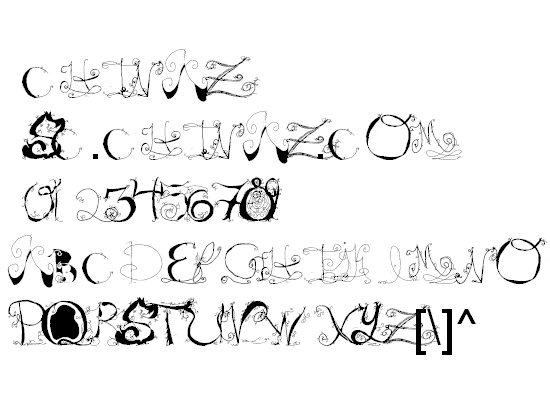 CHINAZ
SC.CHINAZ.COM
0123456789
ABCDEFGHIJKLMNO
PQRSTUVWXYZ[\]^